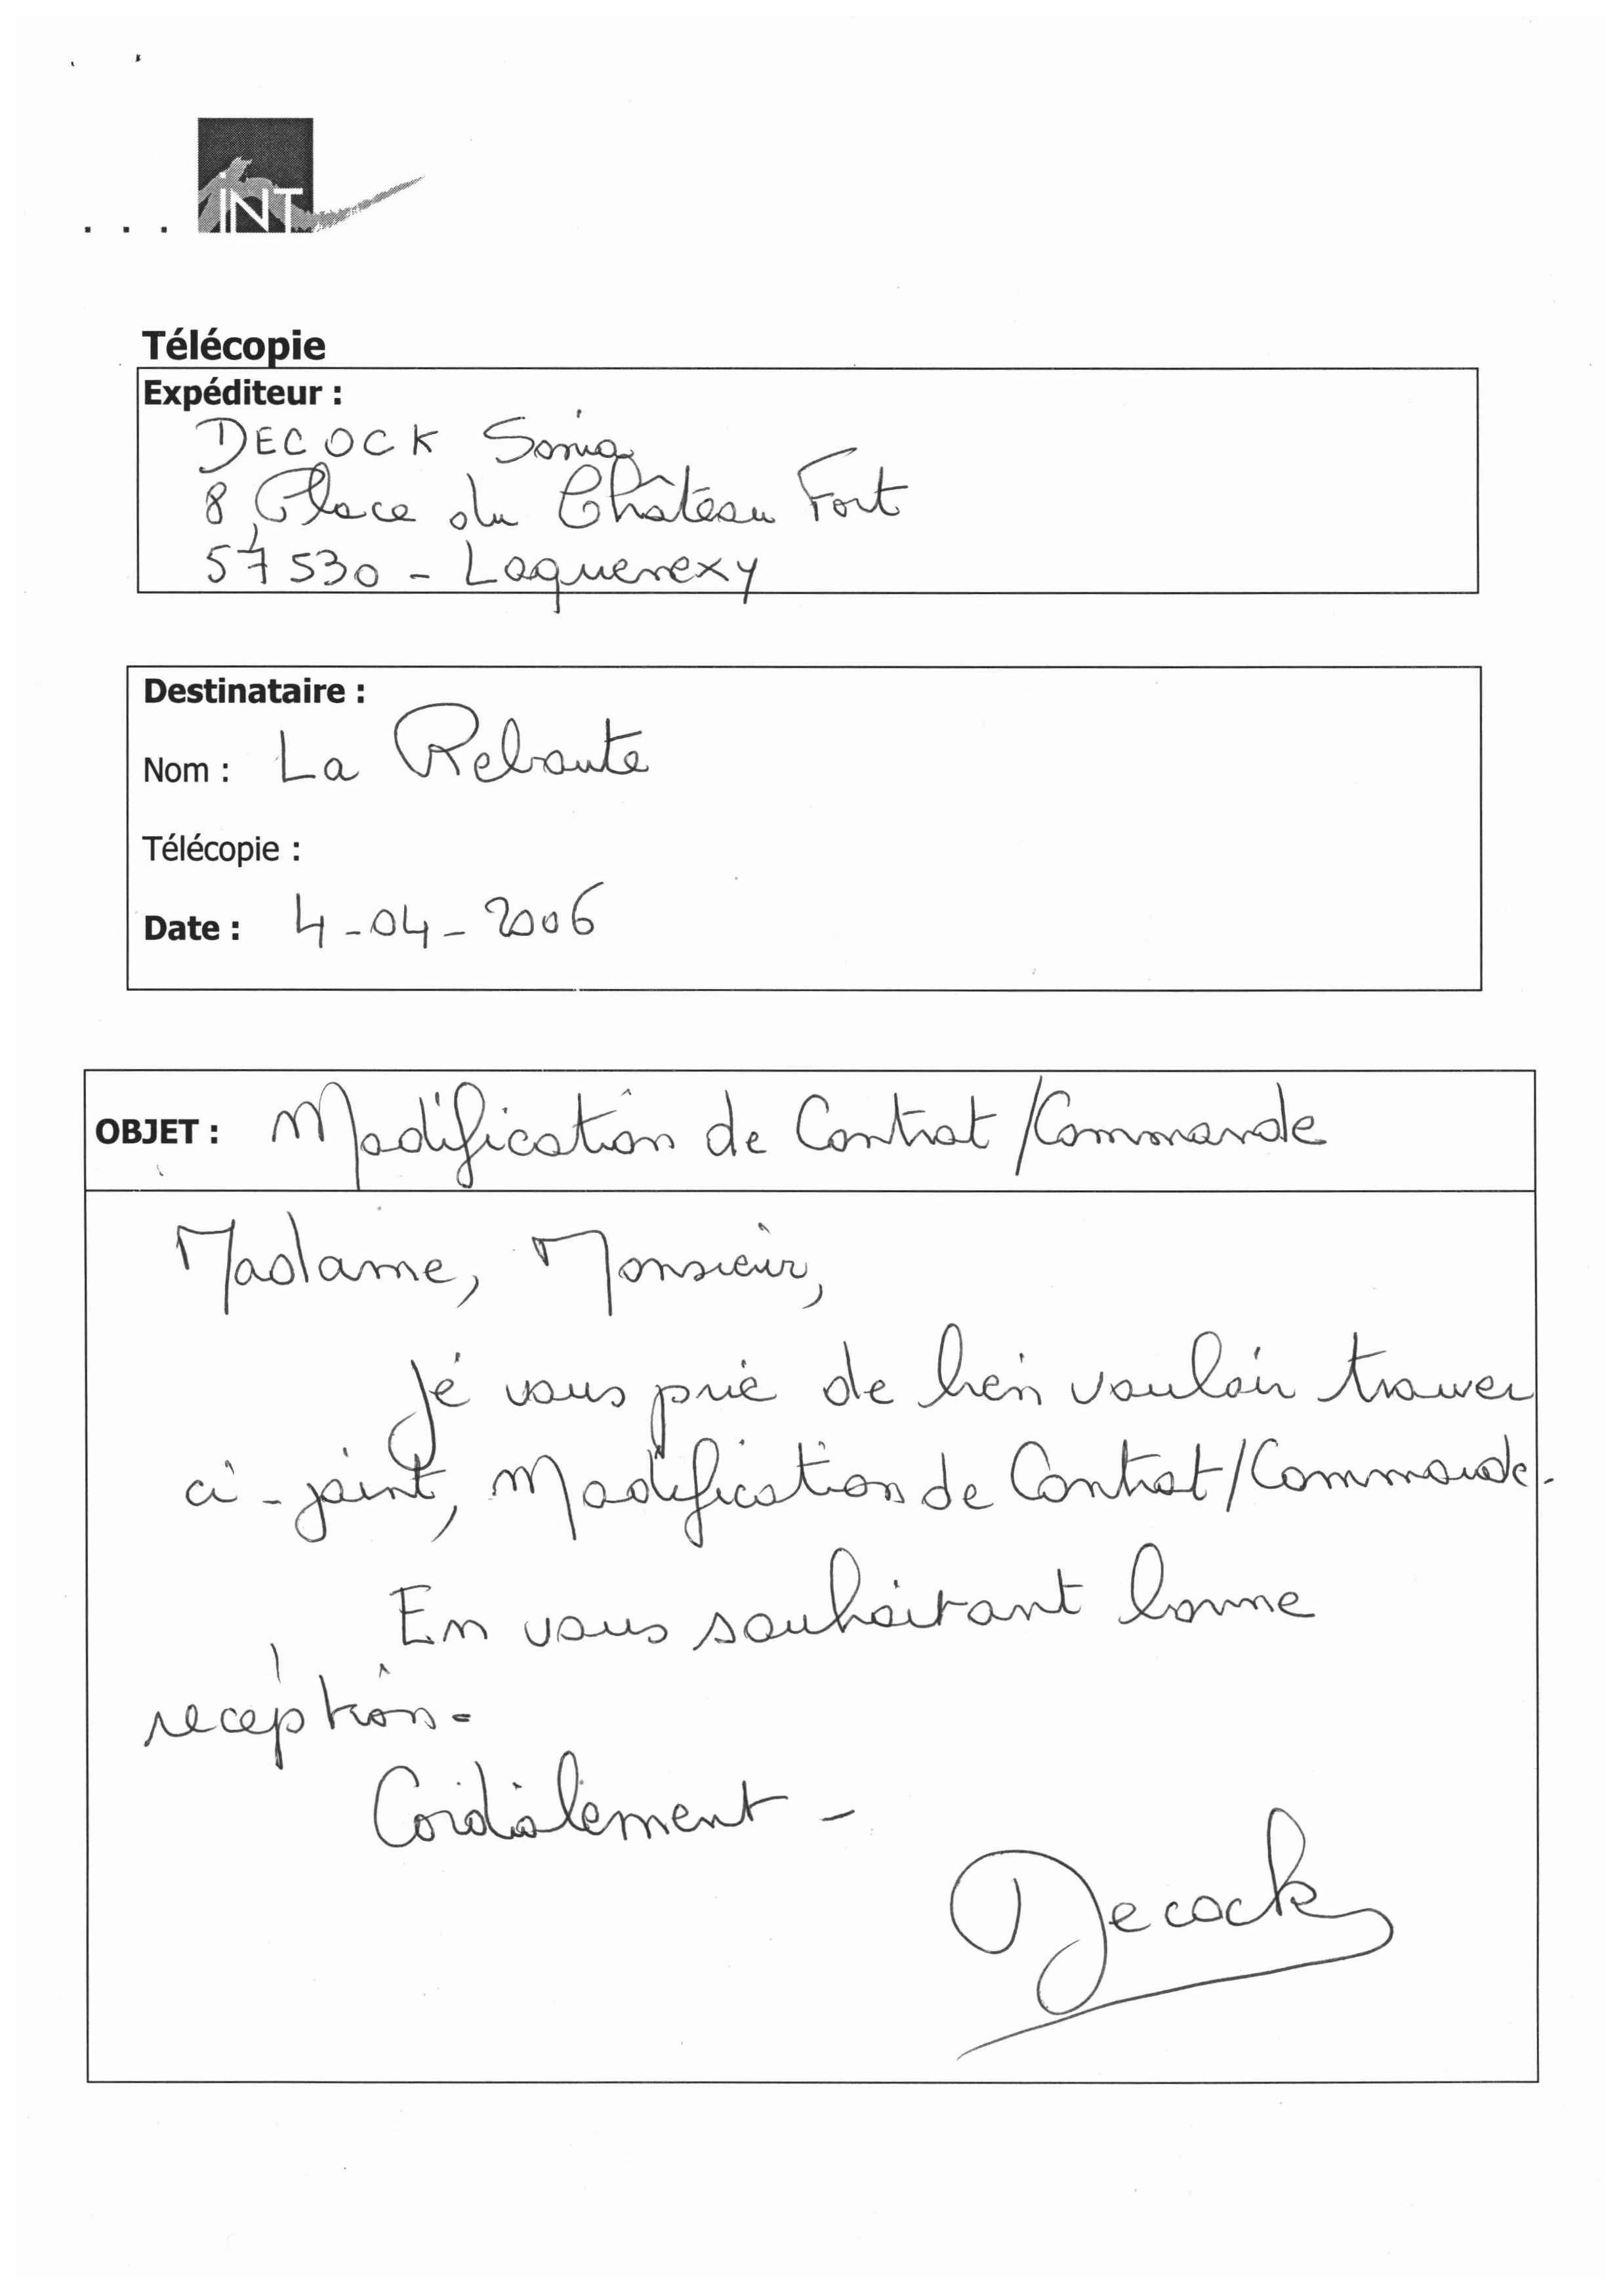 ... INT
Télécopie
Expéditeur :
DECOCK Sonia
8, Place du Château Fort
57530 - Laquenexy
Destinataire :
Nom : La Rebaute
Télécopie :
Date : 4-04-2006
OBJET : Modification de Contrat/Commande
Madame, Monsieur,
Je vous prie de bien vouloir trouver
ci-joint, Modification de Contrat/Commande.
En vous souhaitant bonne
réception.
Cordialement -
Decock